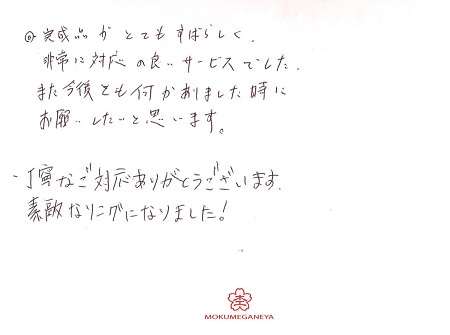 ◎完成品がとてもすばらしく、
非常に対応の良いサービスでした。
また今後とも何かありました時に
お願いしたいと思います。
・丁寧なご対応ありがとうございます。
素敵なリングになりました!
MOKUMEGANEYA